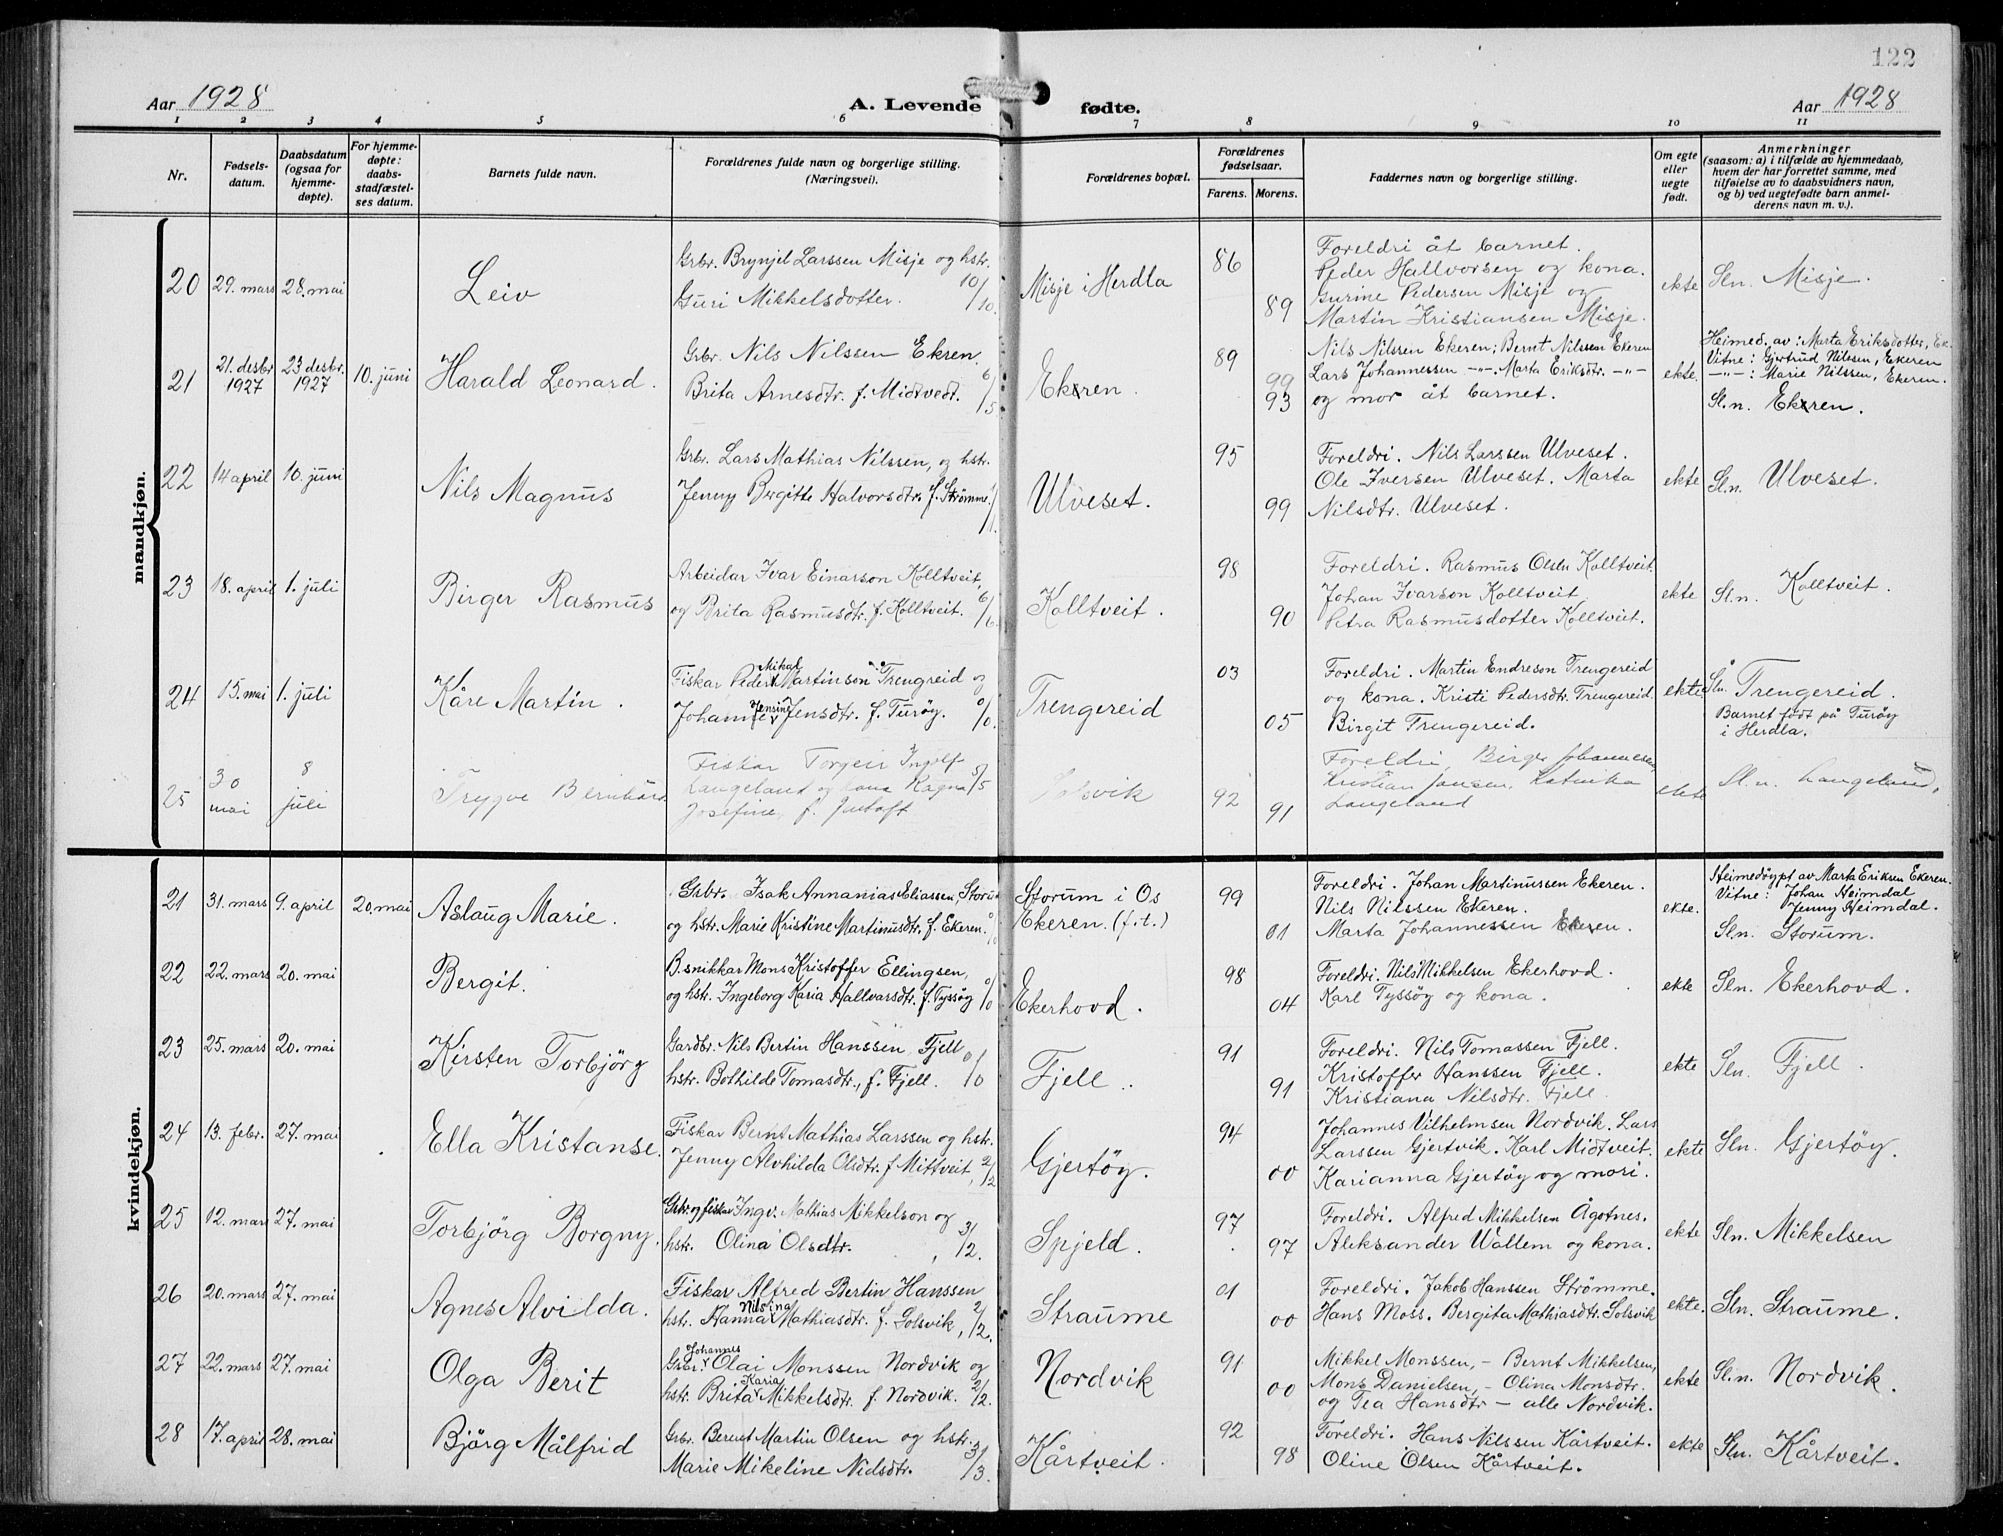 122
Aar 1928
A. Levende fødte.
Aar 1928
1 2 3 4 5 6 7 8 9 10 11
Nr.
Fødsels-
datum.
Daabsdatum
(ogsaa for
hjemme-
døpte).
For hjemme-
døpte:
daabs-
stadfæstel-
ses datum.
Barnets fulde navn.
Forældrenes fulde navn og borgerlige stilling.
(Næringsvei).
Forældrenes bopæl.
Forældrenes
fødselsaar.
Farens. Morens.
Faddernes navn og borgerlige stilling.
Om egte
eller
uegte
født.
Anmerkninger
(saasom: a) i tilfælde av hjemmedaab,
hvem der har forrettet samme, med
tilføielse av to daabsvidners navn,
og b) ved uegtefødte barn anmel-
derens navn m. v.).
mandkjøn.
20 29. mars 28. mai
Leiv
Grbr. Brynjel Larssen Misje og hstr.
Guri Mikkelsdotter. 10/10.
Misje i Herdla
86
89
Foreldri åt barnet.
Peder Hallvorsen og kona.
Gurine Pedersen Misje og
Martin Kristiansen Misje.
ekte
Sln. Misje.
21
21. desbr. 1927
23 desbr. 1927
10. juni
Harald Leonard.
Grbr. Nils Nilssen Ekren.
Brita Arnesdtr. f. Midtvedt. 6/5
Ekren.
89
99
93
Nils Nilssen Ekeren; Bernt Nilssen Ekeren
Lars Johannessen -"-. Marta Eriksdtr. -"-
og mor åt barnet.
ekte.
Heimed. av: Marta Eriksdotter, Ek.
Vitne: Gjertrud Nilssen, Ekeren
-"-: Marie Nilssen, Ekeren.
Sl.n. Ekren.
22 14 april 10. juni
Nils Magnus
Grbr. Lars Mathias Nilssen, og hstr.
Jenny Bergitte Halvorsdtr. f. Strømme. 1/1.
Ulveset.
95
99
Foreldri. Nils Larssen Ulveset.
Ole Iversen Ulveset. Marta
Nilsdtr. Ulveset.
ekte
Sl.n. Ulveset.
23 18. april 1. juli
Birger Rasmus
Arbeidar Ivar Einarson Kolltveit,
og Brita Rasmusdtr. f. Kolltveit. 6/6.
Kolltveit.
98
90
Foreldri. Rasmus Olsen Kolltveit.
Johan Ivarson Kolltveit
Petra Rasmusdotter Kolltveit.
ekte
Sl.n. Kolltveit.
24 15. mai 1. juli
Kåre Martin.
Mikal
Fiskar Peder Martinson Trengreid og
Jensine
Johanne Jensdtr. f. Turøy. 0/0.
Trengereid
03
05
Foreldri. Martin Endreson Trengereid
og kona. Kristi Pedersdtr. Trengereid
Birgit Trengereid.
ekte
Sln. Trengereid.
Barnet født på Turøy
i Herdla.
25
30
mai
8
juli
Trygve Bernhard
Fiskar Torgeir Ingolf
Langeland og kona Ragna 5/5
Josefine, f.
Solsvik
92
91
Foreldri, Birger Johannesen,
Kristian Jansen,
Langeland
ekte
Sl.n. Langeland.
kvindekjøn.
21 31. mars 9. april 20. mai
Aslaug Marie.
Grbr. Isak Annanias Eliassen, Storum
og hstr. Marie Kristine Martinusdtr. f. Ekeren. 0/0
Storum i Os
Ekeren. (f.t.)
99
01
Foreldri. Johan Martinussen Ekeren.
Nils Nilssen Ekeren.
Marta Johannessen Ekeren.
ekte.
Heimedøypt av Marta Eriksen Ekeren.
Vitne: Johan Heimdal
Jenny Heimdal.
Sln. Storum.
22 22. mars 20. mai
Bergit.
B.snikkar Mons Kristoffer Ellingsen,
og hstr. Ingeborg Karia Hallvarsdtr. f. Tyssøy 0/0
Ekerhovd.
98
04
Foreldri. Nils Mikkelsen Ekerhovd.
Karl Tyssøy og kona.
ekte
Sln. Ekerhovd.
23 25. mars 20. mai
Kirsten Torbjørg
Gardbr. Nils Bertin Hanssen, Fjell
hstr. Bothilde Tomasdtr., f. Fjell. 0/0
Fjell.
91
91
Foreldri. Nils Tomassen Fjell.
Kristoffer Hanssen Fjell.
Kristiana Nilsdtr. Fjell.
ekte
Sln. Fjell.
24 13. febr. 27. mai
Ella Kristanse.
Fiskar Bernt Mathias Larssen og hstr.
Jenny Alvhilda Olsdtr. f Mittveit, 2/2
Gjertøy.
94
00
Johannes Vilhelmsen Nordvik. Lars
Larssen Gjertvik. Karl Midtveit.
Karianna Gjertøy og mori.
ekte
Sln. Gjertøy.
25 12. mars 27. mai
Torbjørg Borgny.
Grbr. og fiskar Ingv. Mathias Mikkelson og
hstr. Olina Olsdtr. 3/2.
Spjeld.
97
97
Foreldri. Alfred Mikkelsen Ågotnes.
Aleksander Wallem og kona.
ekte
Sln. Mikkelsen
26 20. mars 27. mai
Agnes Alvilda.
Fiskar Alfred Bertin Hanssen
Nilsina
hstr. Hanna Mathiasdtr. f. Solsvik, 2/2.
Straume
01
00
Foreldri. Jakob Hanssen Strømme.
Hans Moss. Bergita Mathiasdtr. Solsvik
ekte.
Sln. Straume.
27 22. mars 27. mai
Olga Berit
Johannes
Grbr. Olai Monssen Nordvik og
Karia
hstr. Brita Mikkelsdtr. f. Nordvik. 2/2.
Nordvik
91
00
Mikkel Monssen, - Bernt Mikkelsen,
Mons Danielsen, - Olina Monsdtr.
og Tea Hansdtr - alle Nordvik.
ekte
Sl.n. Nordvik.
28 17. april 28. mai
Bjørg Målfrid
Grbr. Berent Martin Olsen og hstr.
Marie Mikeline Nidsdtr. 3/3.
Kårtveit.
92
98
Foreldri. Hans Nilssen Kårtveit.
Oline Olsen Kårtveit.
ekte
Sln. Kårtveit.